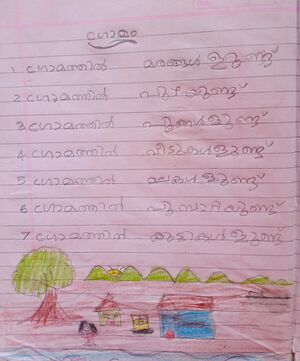 ഗ്രാമം
1 ഗ്രാമത്തിൽ മരങ്ങൾ ഉണ്ട്
2 ഗ്രാമത്തിൽ പുഴയുണ്ട്
3 ഗ്രാമത്തിൽ പൂങ്ങളുണ്ട്
4 ഗ്രാമത്തിൽ വീടുകളുണ്ട്
5 ഗ്രാമത്തിൽ മലകളുണ്ട്
6 ഗ്രാമത്തിൽ
7 ഗ്രാമത്തിൽ കുട്ടികൾ ഉണ്ട്